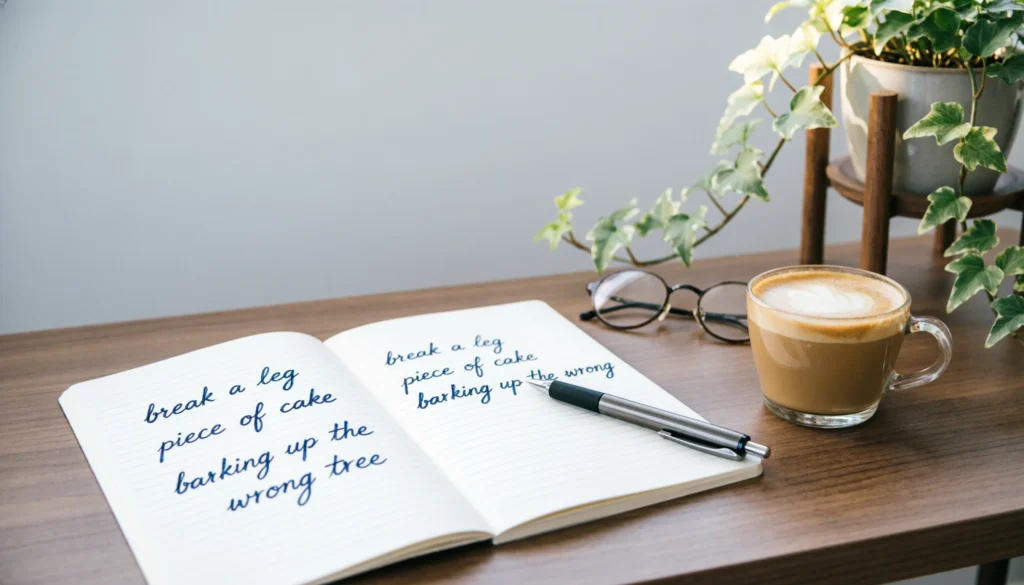 break a leg
piece of cake
barking up the
wrong tree
break a leg
piece of cake
barking up the wrong